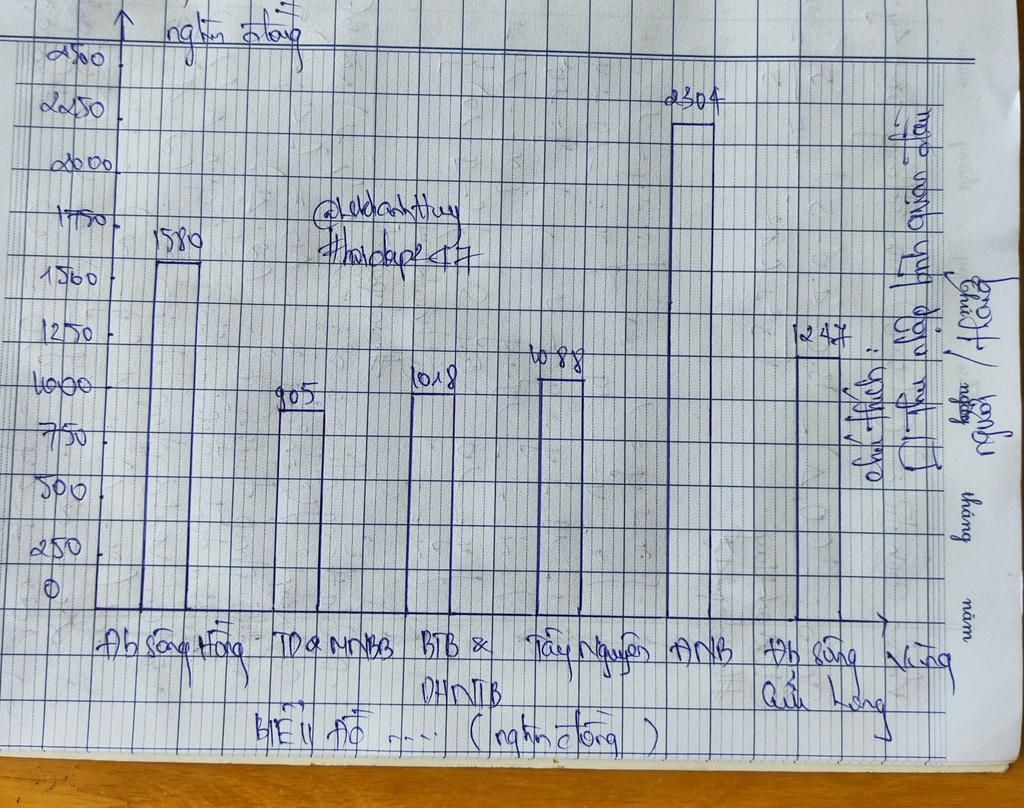 nghìn đồng
2500
2250
2000
1750
1500
1250
1000
750
500
250
0
1580
905
1018
1088
2304
1247
#hoidap247
Đb sông Hồng
TD & MNBB
BTB &
DHNTB
Tây Nguyên
ĐNB
Đb sông
Cửu Long
Vùng
BIỂU ĐỒ ..... (nghìn đồng)
chú thích:
Thu nhập bình quân đầu
người / tháng
ngày
tháng
năm